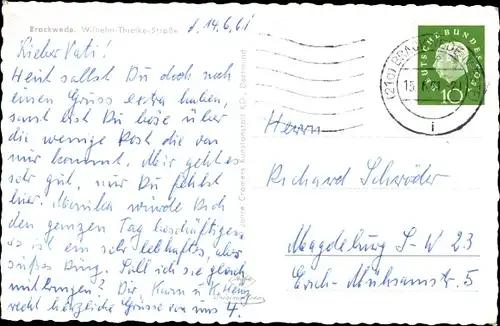 Brackwede. Wilhelm-Thielke-Straße
d. 14.6.61
Lieber Vati!
Heut sollst Du doch noch
einen Gruss extra haben,
sonst bist Du böse über
die wenige Post die von
mir kommt. Mir geht es
sehr gut, nur Du fehlst
hier. Monika würde Dich
den ganzen Tag beschäftigen,
es ist ein sehr lebhaftes, aber
süßes Ding. Soll ich sie gleich
mitbringen? Dir, Karin u.
recht herzliche Grüsse von uns 4.
Cramers Kunstanstalt KG., Dortmund
DEUTSCHE BUNDESPOST
10
(21a)
Herrn
Richard Schröder
Magdeburg S-W 23
Erich-Mühsamstr. 5